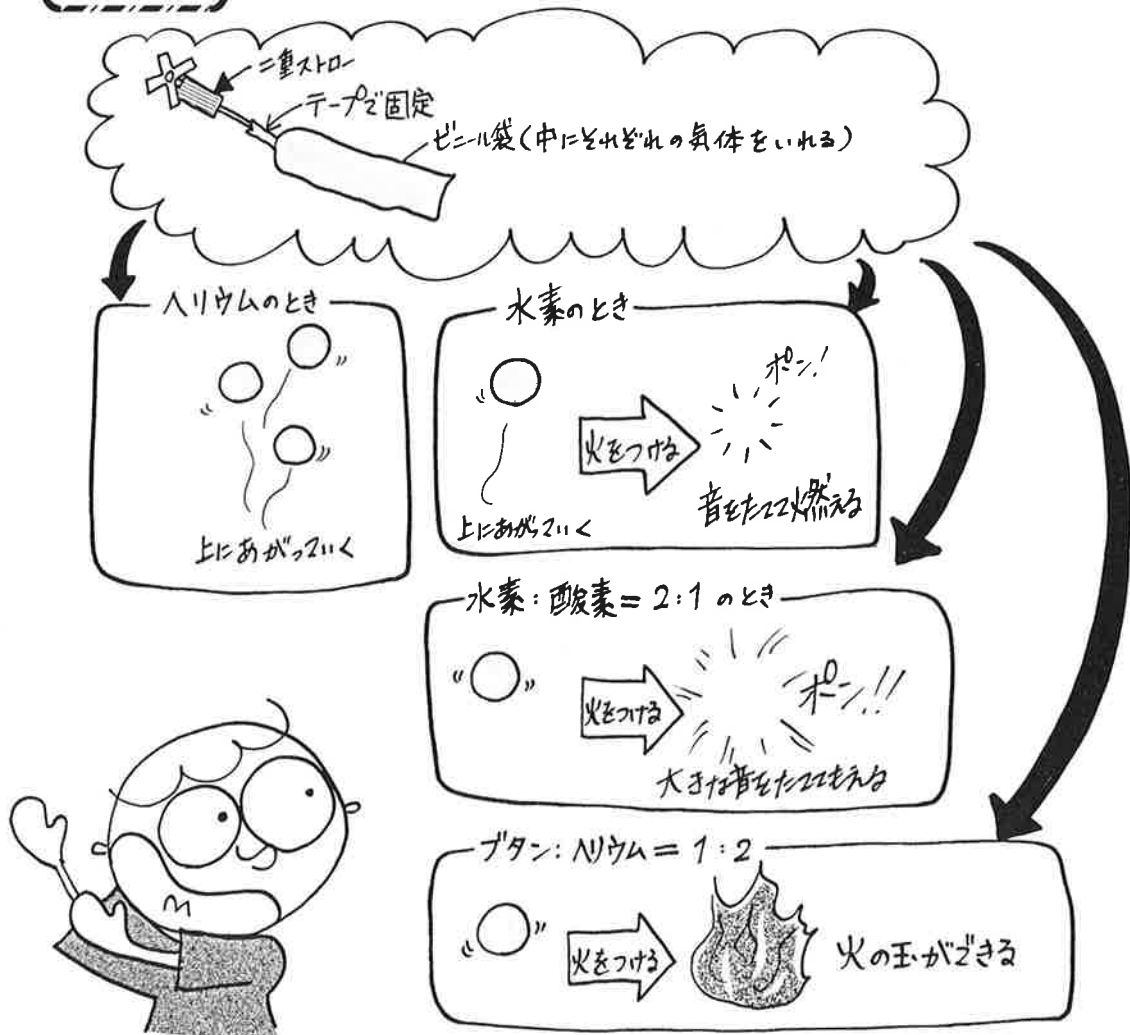 二重ストロー
テープで固定
ビニール袋(中にそれぞれの気体をいれる)
ヘリウムのとき
上にあがっていく
水素のとき
火をつける
ポン!
上にあがっていく
音をたてて燃える
水素:酸素=2:1のとき
火をつける
ポーン!!
大きな音をたててもえる
ブタン:ヘリウム=1:2
火をつける
火の玉ができる